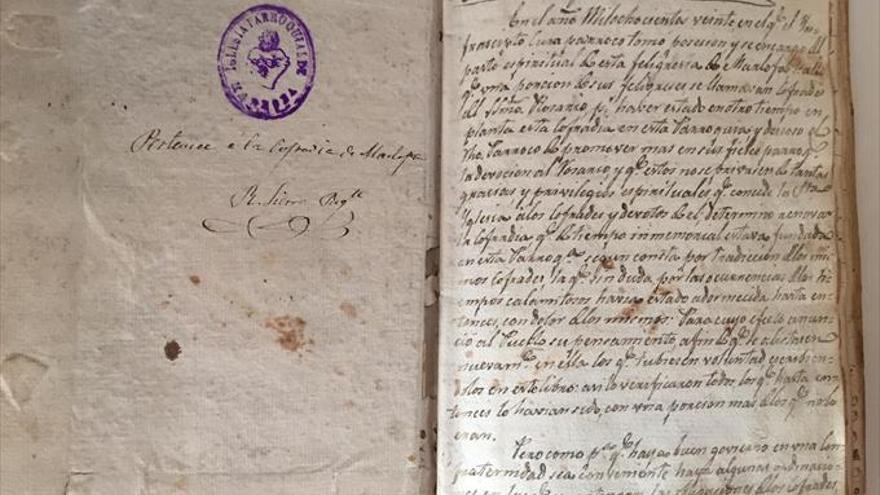 IGLESIA PARROQUIAL DE
Pertenece á la Cofradia de
R. Sierra
En el año Mil ochocientos veinte en el q.e el
Cura parroco tomo posesion y se encargo del
pasto espiritual de esta feligresia de
q.e una porcion de sus feligreses se llamaban Cofrades
del Rosario p.r haver estado en otro tiempo en
planta esta Cofradia en esta Parroquia, y deseoso el
Parroco de promover mas en sus fieles
la devocion al Rosario, y q.e estos no se priven de tantas
gracias, y privilegios espirituales q.e concede la
Iglesia á los Cofrades y devotos de el, determino renovar
la Cofradia q.e de tiempo inmemorial estava fundada
en esta segun consta por tradicion de los mis
mos Cofrades, la q.e sin duda por las ocurrencias de los ti
empos calamitosos havia estado adormecida hasta en
tonces, con dolor de los mismos: Para cuyo efecto anun
ció al Pueblo su pensamiento, a fin de q.e se alistasen
nuevam.te en ella los q.e tubiesen voluntad escribien
dolos en este libro: asi lo verificaron todos los q.e hasta en
tonces lo havian sido, con una porcion mas de los q.e no lo
eran.
Pero como p.a q.e haya buen govierno en una Con
fraternidad sea conveniente haya algunas ordinacio